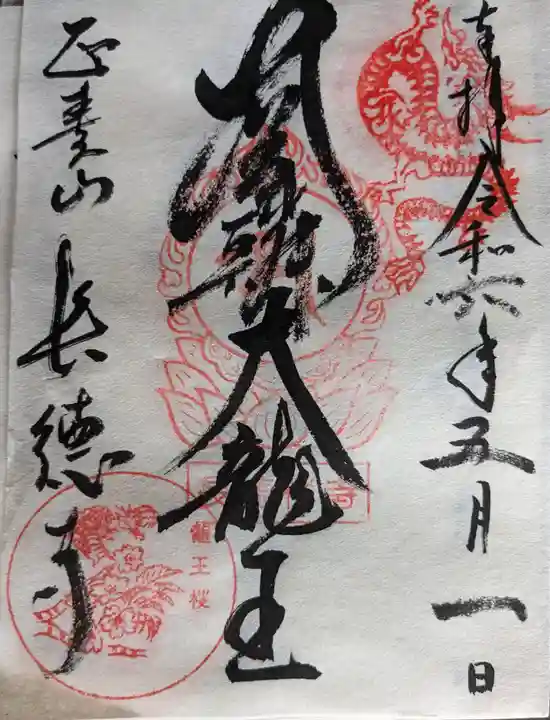 奉拝 令和六年五月一日
大龍王
正 山 長徳寺
龍王桜
寺